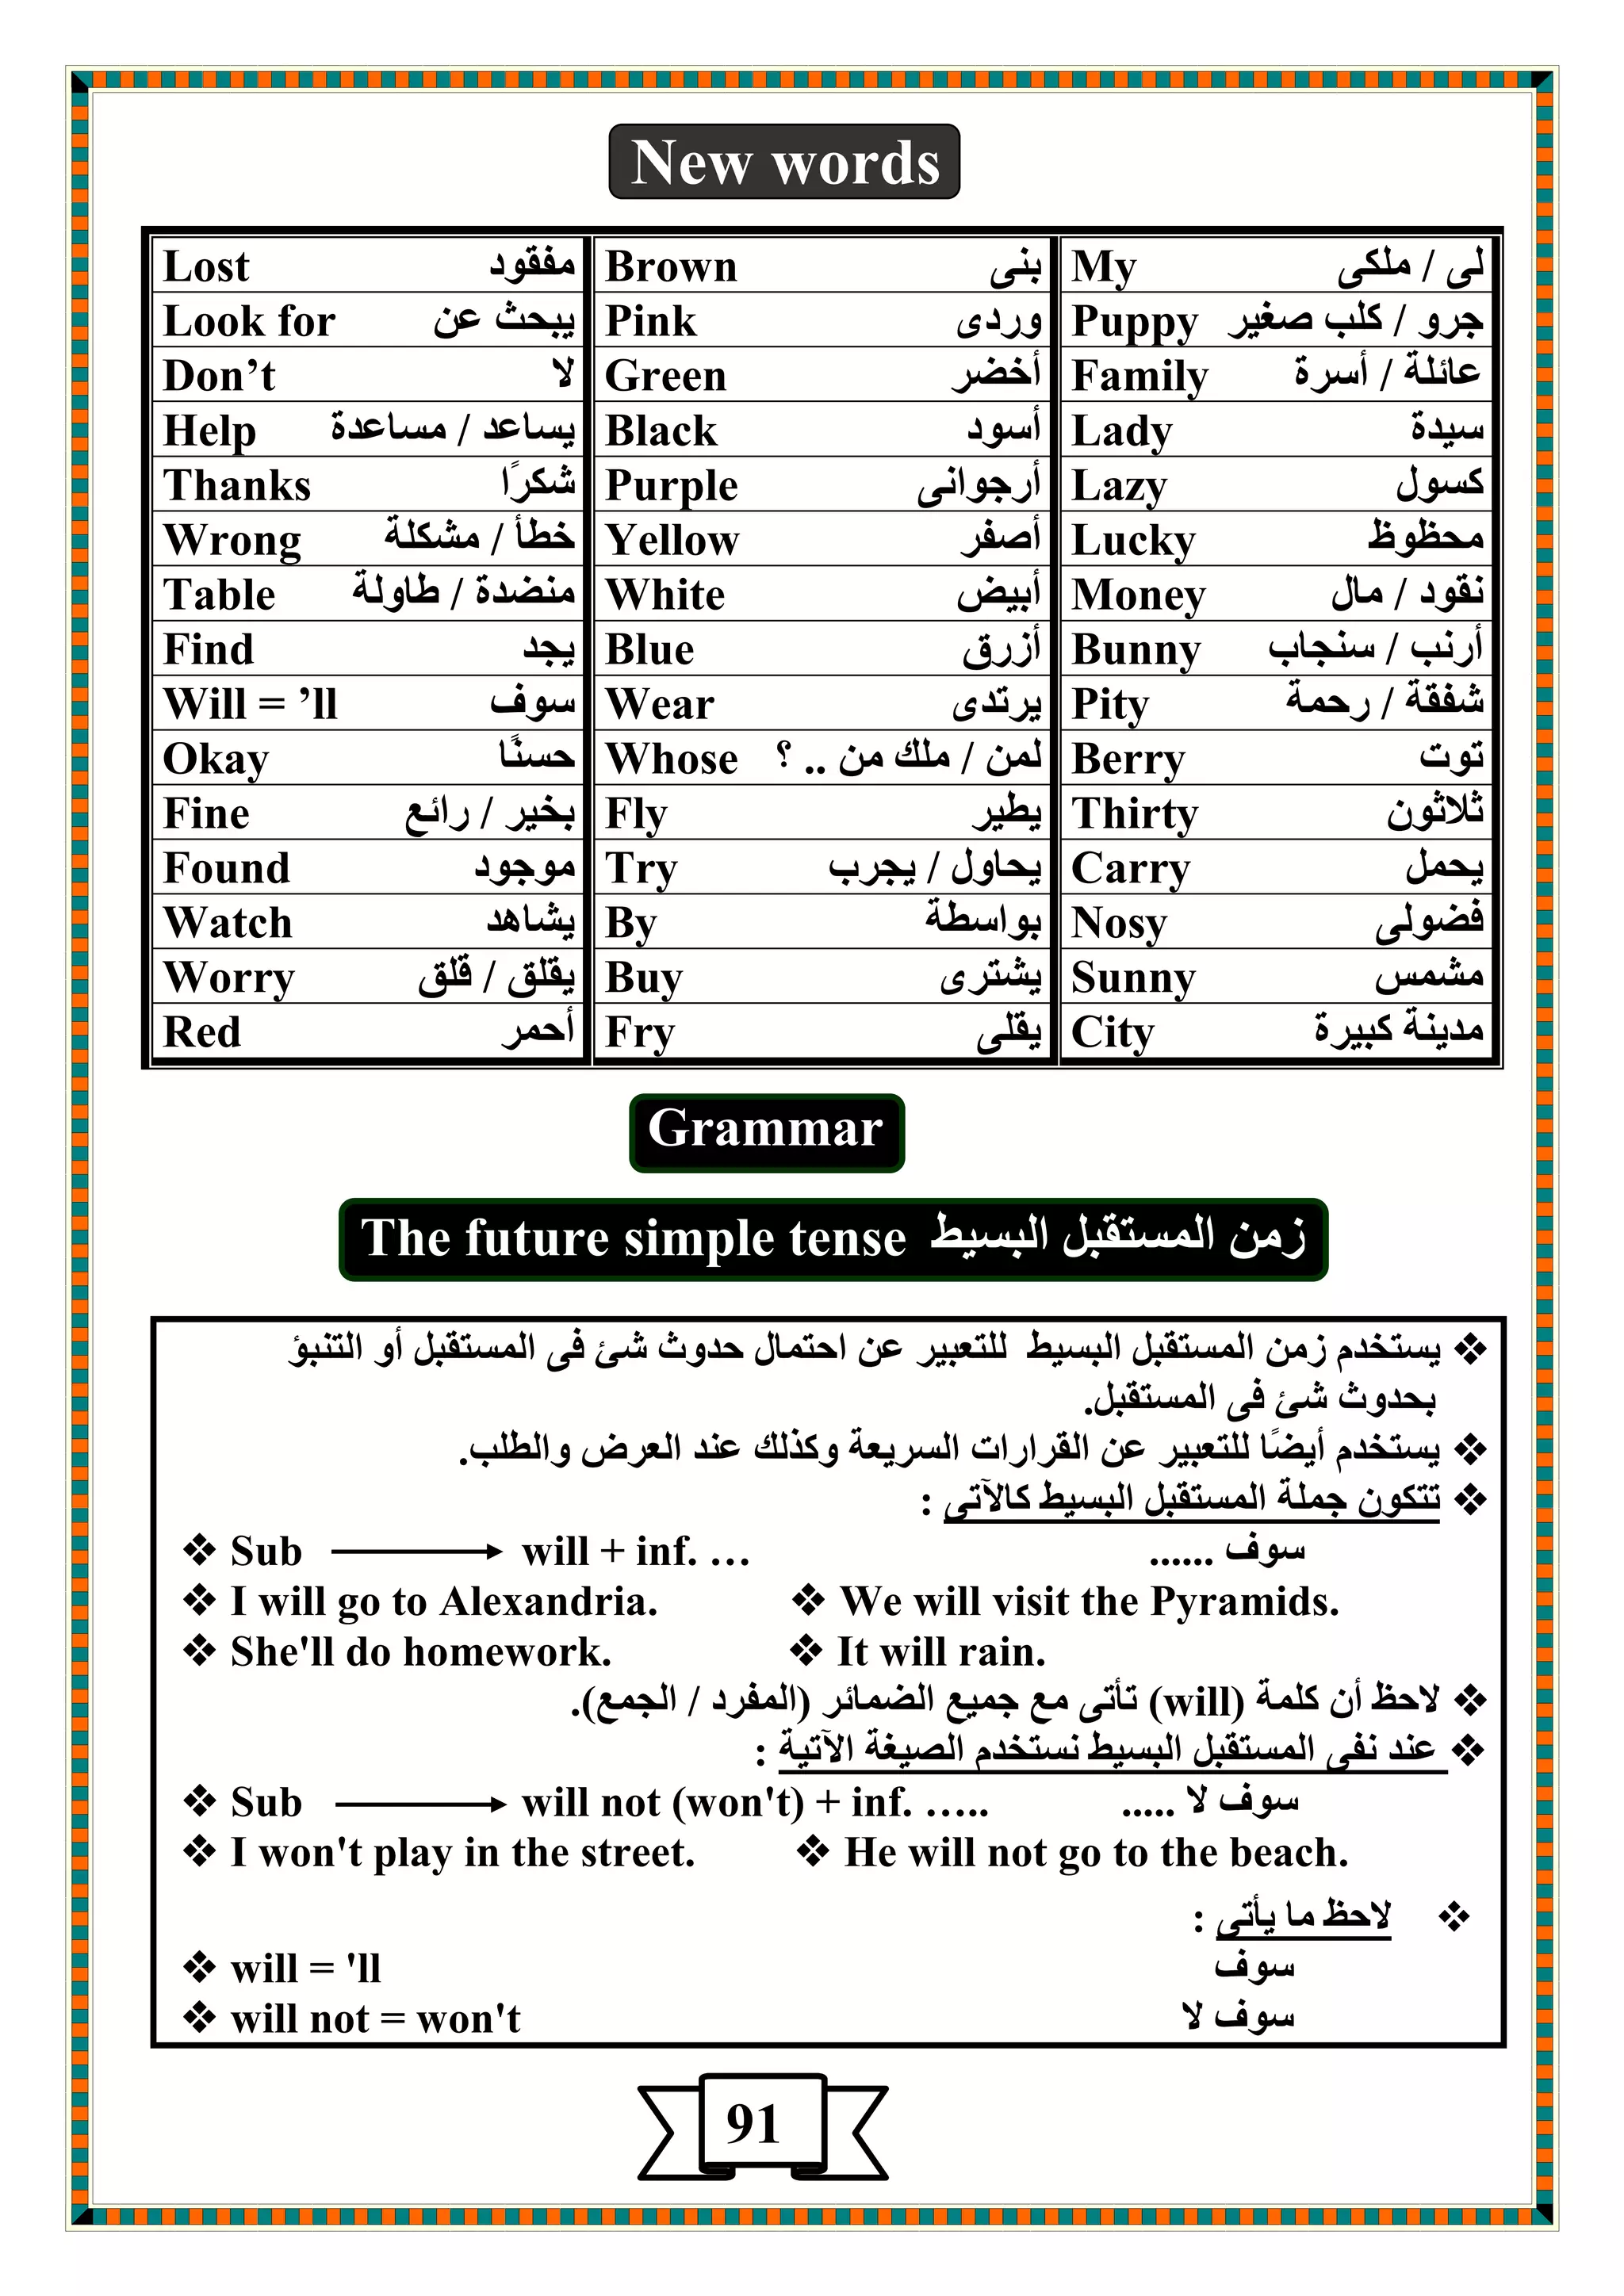 New words
Lost مفقود Brown بنى My لى / ملكى
Look for يبحث عن Pink وردى Puppy جرو / كلب صغير
Don’t لا Green أخضر Family عائلة / أسرة
Help يساعد / مساعدة Black أسود Lady سيدة
Thanks شكرًا Purple أرجوانى Lazy كسول
Wrong خطأ / مشكلة Yellow أصفر Lucky محظوظ
Table منضدة / طاولة White أبيض Money نقود / مال
Find يجد Blue أزرق Bunny أرنب / سنجاب
Will = ’ll سوف Wear يرتدى Pity شفقة / رحمة
Okay حسنًا Whose لمن / ملك من .. ؟ Berry توت
Fine بخير / رائع Fly يطير Thirty ثلاثون
Found موجود Try يحاول / يجرب Carry يحمل
Watch يشاهد By بواسطة Nosy فضولى
Worry يقلق / قلق Buy يشترى Sunny مشمس
Red أحمر Fry يقلى City مدينة كبيرة
Grammar
The future simple tense زمن المستقبل البسيط
❖ يستخدم زمن المستقبل البسيط للتعبير عن احتمال حدوث شئ فى المستقبل أو التنبؤ
بحدوث شئ فى المستقبل.
❖ يستخدم أيضًا للتعبير عن القرارات السريعة وكذلك عند العرض والطلب.
❖ تتكون جملة المستقبل البسيط كالآتى :
❖ Sub → will + inf. … سوف ......
❖ I will go to Alexandria. ❖ We will visit the Pyramids.
❖ She'll do homework. ❖ It will rain.
❖ لاحظ أن كلمة (will) تأتى مع جميع الضمائر (المفرد / الجمع).
❖ عند نفى المستقبل البسيط نستخدم الصيغة الآتية :
❖ Sub → will not (won't) + inf. ….. سوف لا .....
❖ I won't play in the street. ❖ He will not go to the beach.
❖ لاحظ ما يأتى :
❖ will = 'll سوف
❖ will not = won't سوف لا
91